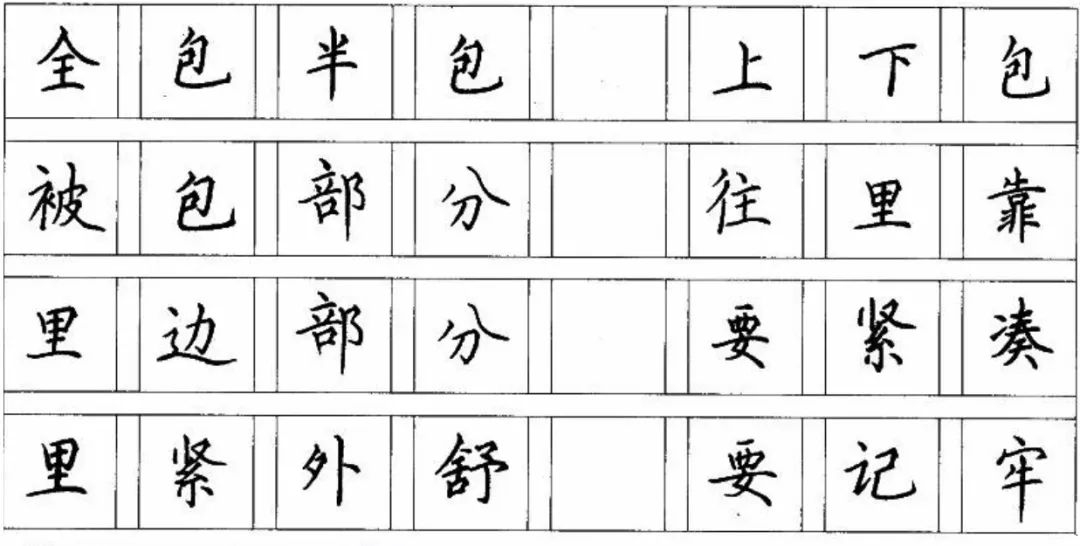 全包半包 上下包
被包部分 往里靠
里边部分 要紧凑
里紧外舒 要记牢